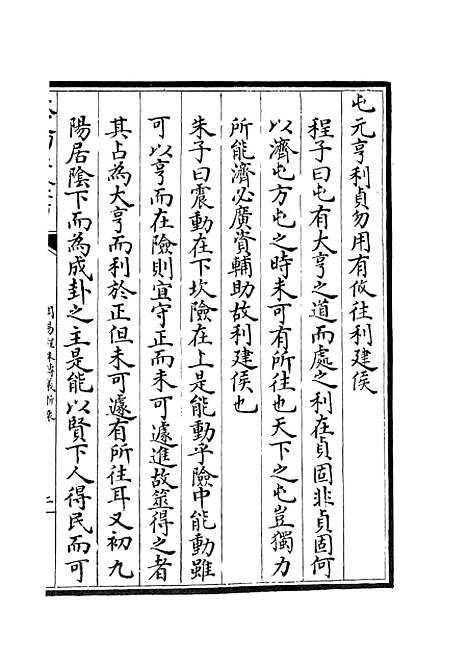 屯元亨利貞勿用有攸往利建侯
程子曰屯有大亨之道而處之利在貞固非貞固何
以濟屯方屯之時未可有所往也天下之屯豈獨力
所能濟必廣資輔助故利建侯也
朱子曰震動在下坎險在上是能動乎險中能動雖
可以亨而在險則宜守正而未可遽進故筮得之者
其占為大亨而利於正但未可遽有所往耳又初九
陽居陰下而為成卦之主是能以賢下人得民而可
周易程朱傳義折衷